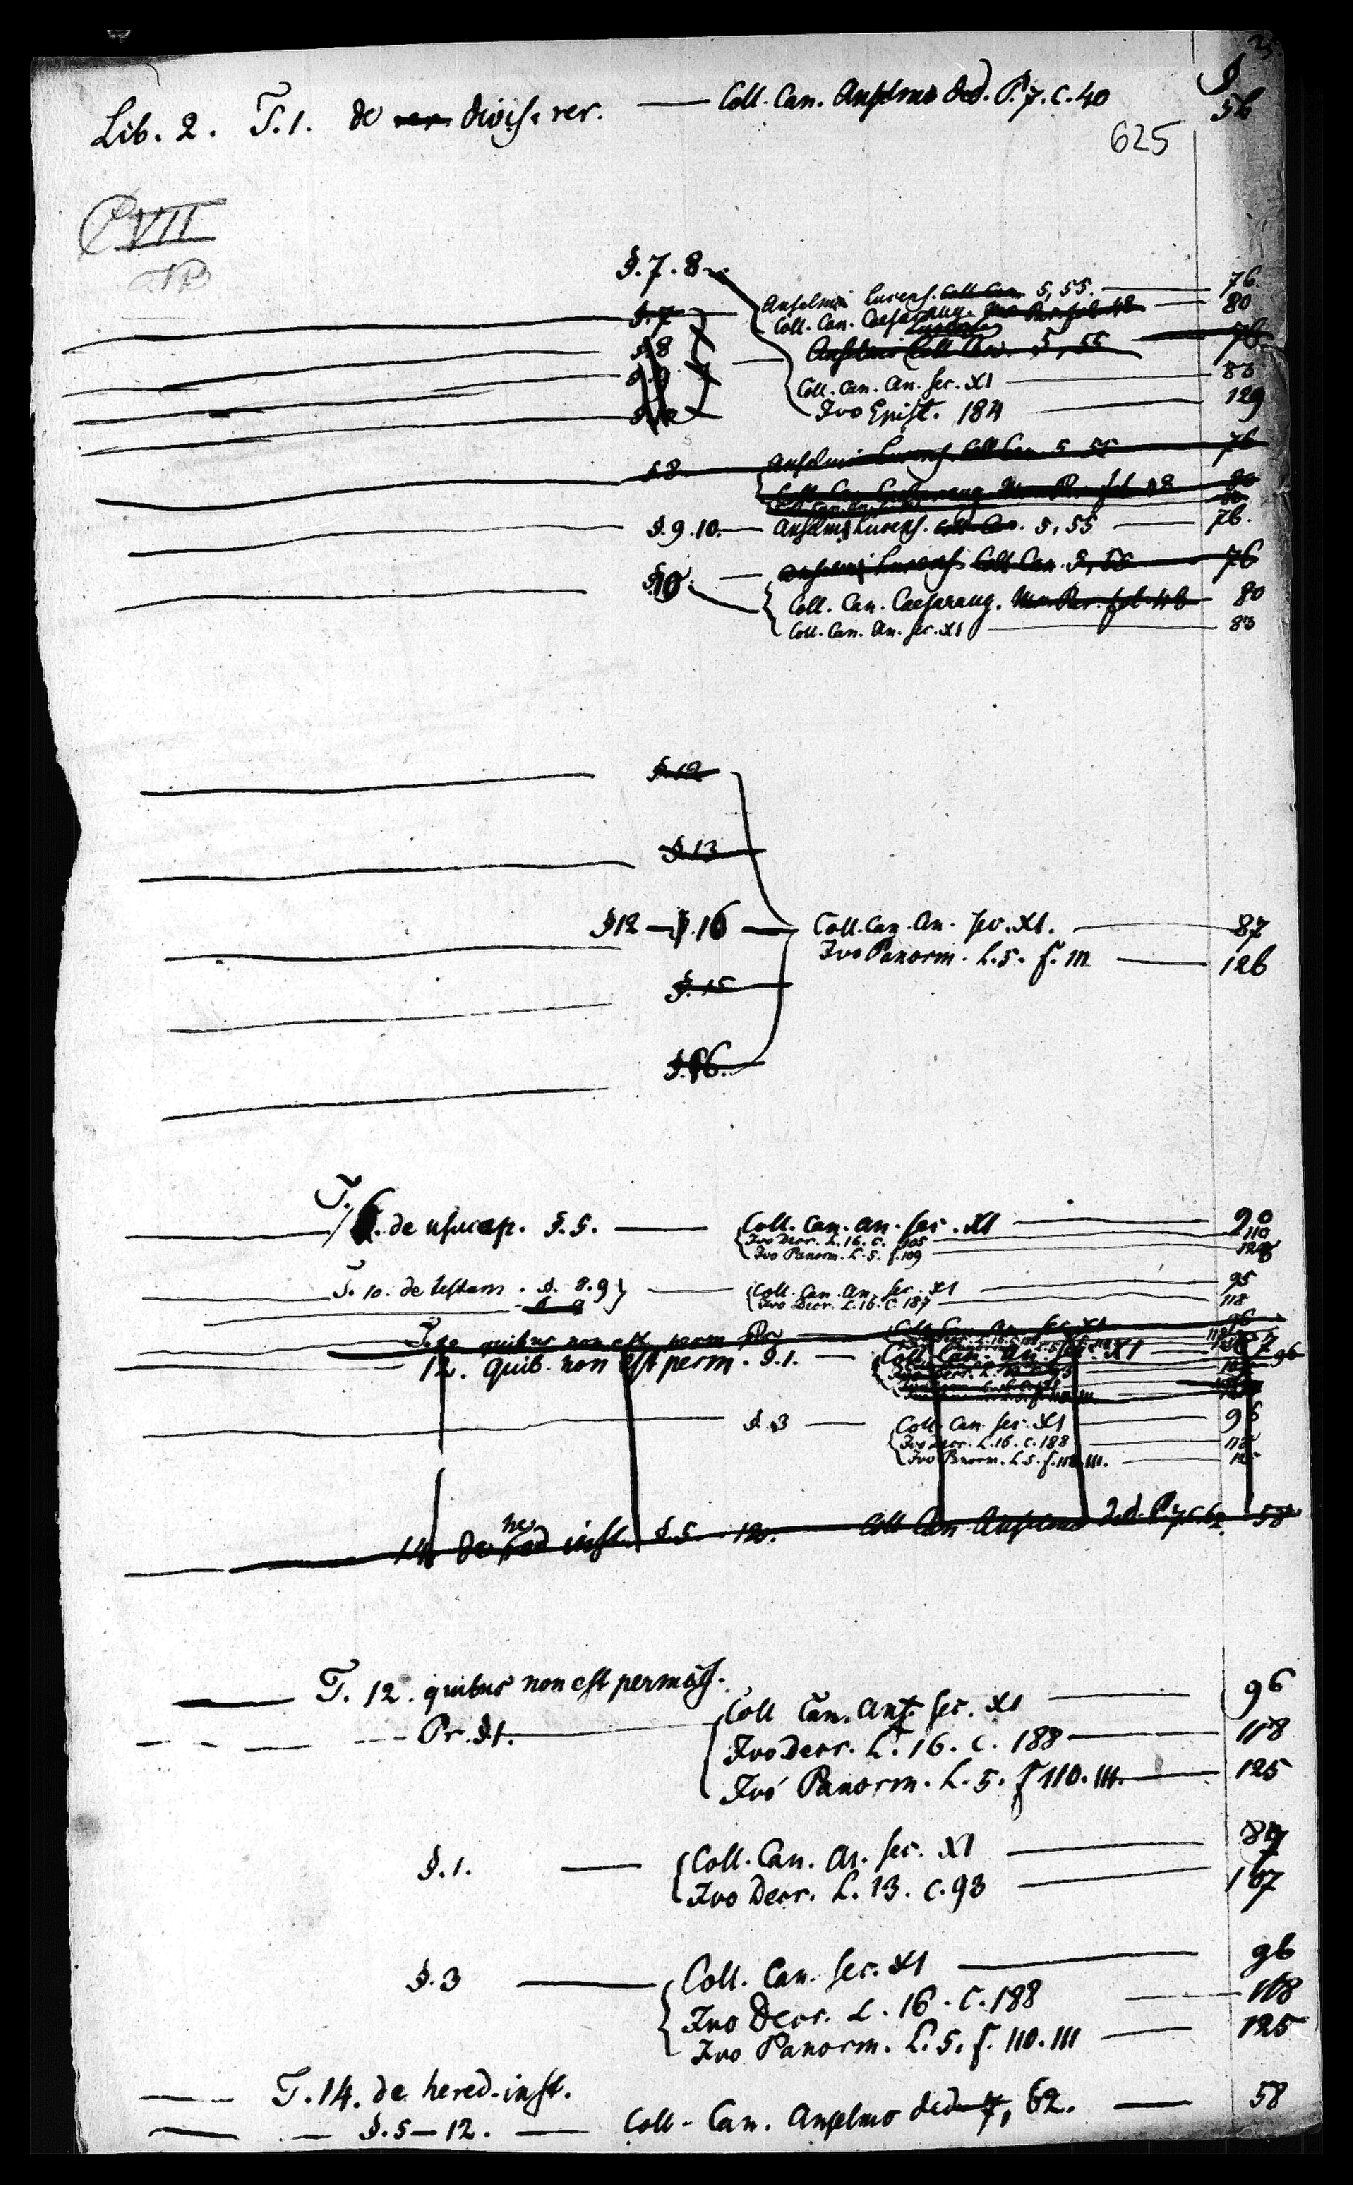 §
Lib. 2. T. 1. de rer. divis. rer. — Coll. Can. Anselmo ded. P. 7. c. 40 56
625
C VII
NB
§. 7. 8.
Anselmi Lucens. Coll. Can. 5, 55. — 76.
§. 7 Coll. Can. Caesaraug. Ms. Par. fol. 48 — 80
§. 8 Anselmi Coll. Can. 5, 55 — 76
§. 9 Coll. Can. An. sec. XI — 83
Ivo Epist. 184 — 129
§. 8 Anselmi Lucens. Coll. Can. 5, 55 76
Coll. Can. Caesaraug. Ms. Par. fol. 48 80
§. 9. 10. — Anselmi Lucens. Coll. Can. 5, 55 — 76.
§ 10. — Anselmi Lucens. Coll. Can. 5, 55 — 76
Coll. Can. Caesaraug. Ms. Par. fol. 48 80
Coll. Can. An. sec. XI — 83
§. 12
§. 13
§ 12 — §. 16 — Coll. Can. An. sec. XI. — 87
Ivo Panorm. L. 5. f. 111 — 126
§. 15
§. 16.
T. 6. de usucap. §. 5. — Coll. Can. An. sec. XI — 90
Ivo Decr. L. 16. c. 110
Ivo Panorm. L. 5. f. 109
T. 10. de testam. §. 8. 9 — Coll. Can. An. sec. XI — 95
Ivo Decr. L. 16. c. 187 — 118
quibus non est perm. Pr. — Coll. Can. An. sec. XI 96
12. quib. non est perm. §. 1. — Coll. Can. An. sec. XI 96
§. 3 — Coll. Can. sec. XI — 96
Ivo Decr. L. 16. c. 188 — 118
Ivo Panorm. L. 5. f. 110. 111. — 125
14. De hered inst. §. 5 - 12. Coll. Can. Anselmo ded. P. 7. c. 62. 58
T. 12. quibus non est permiss.
Pr. §. 1. — Coll. Can. An. sec. XI — 96
Ivo Decr. L. 16. c. 188 — 118
Ivo Panorm. L. 5. f 110. 111. — 125
§. 1. — Coll. Can. An. sec. XI — 87
Ivo Decr. L. 13. c. 93 — 107
§. 3 — Coll. Can. sec. XI — 96
Ivo Decr. L. 16. c. 188 — 118
Ivo Panorm. L. 5. f. 110. 111 — 125
T. 14. de hered. inst.
§. 5 — 12. — Coll. Can. Anselmo ded. 7, 62. — 58